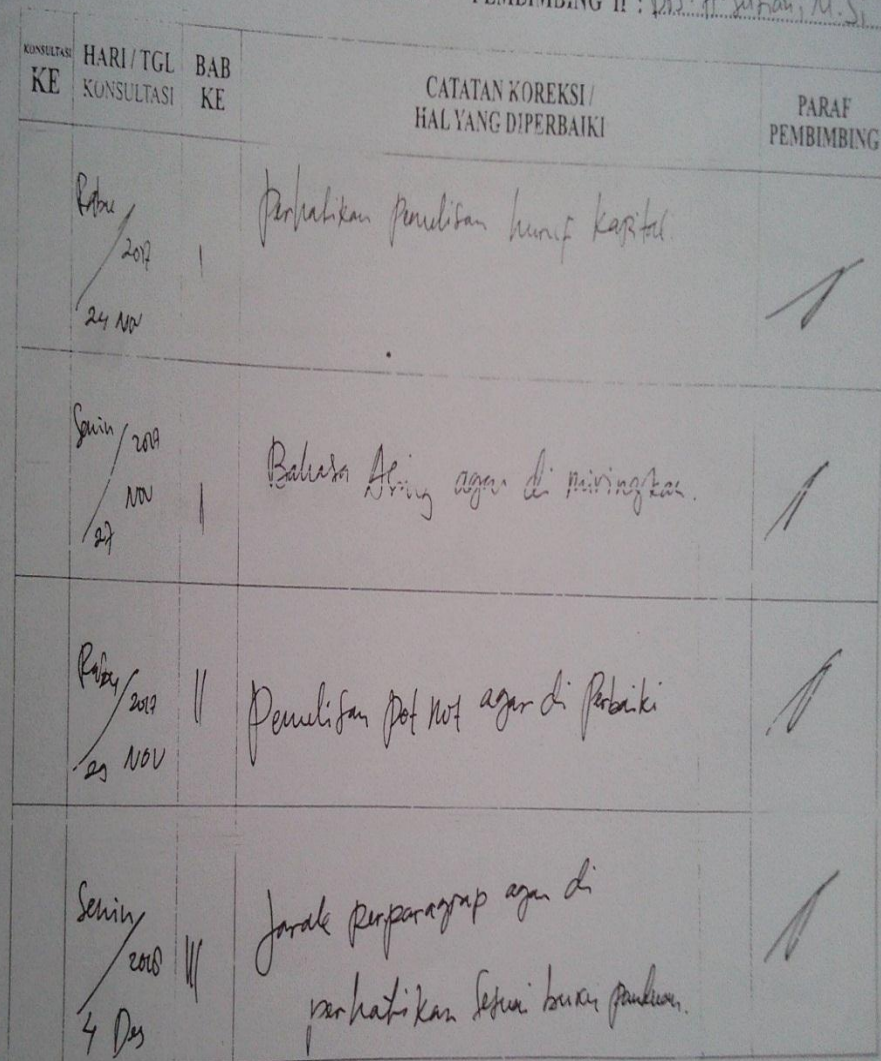 PEMBIMBING II : Drs. H. Sufian, M.Si
KONSULTASI KE
HARI / TGL KONSULTASI
BAB KE
CATATAN KOREKSI /
HAL YANG DIPERBAIKI
PARAF
PEMBIMBING
Rabu
2017
24 Nov
I
perhatikan Penulisan huruf kapital.
Senin
2017
NOV
27
I
Bahasa Asing agar di miringkan.
Rabu
2017
29 NOV
II
Penulisan Pot not agar di Perbaiki
Senin
2018
4 Des
III
Jarak perparagrap agar di
perhatikan Sesuai buku panduan.